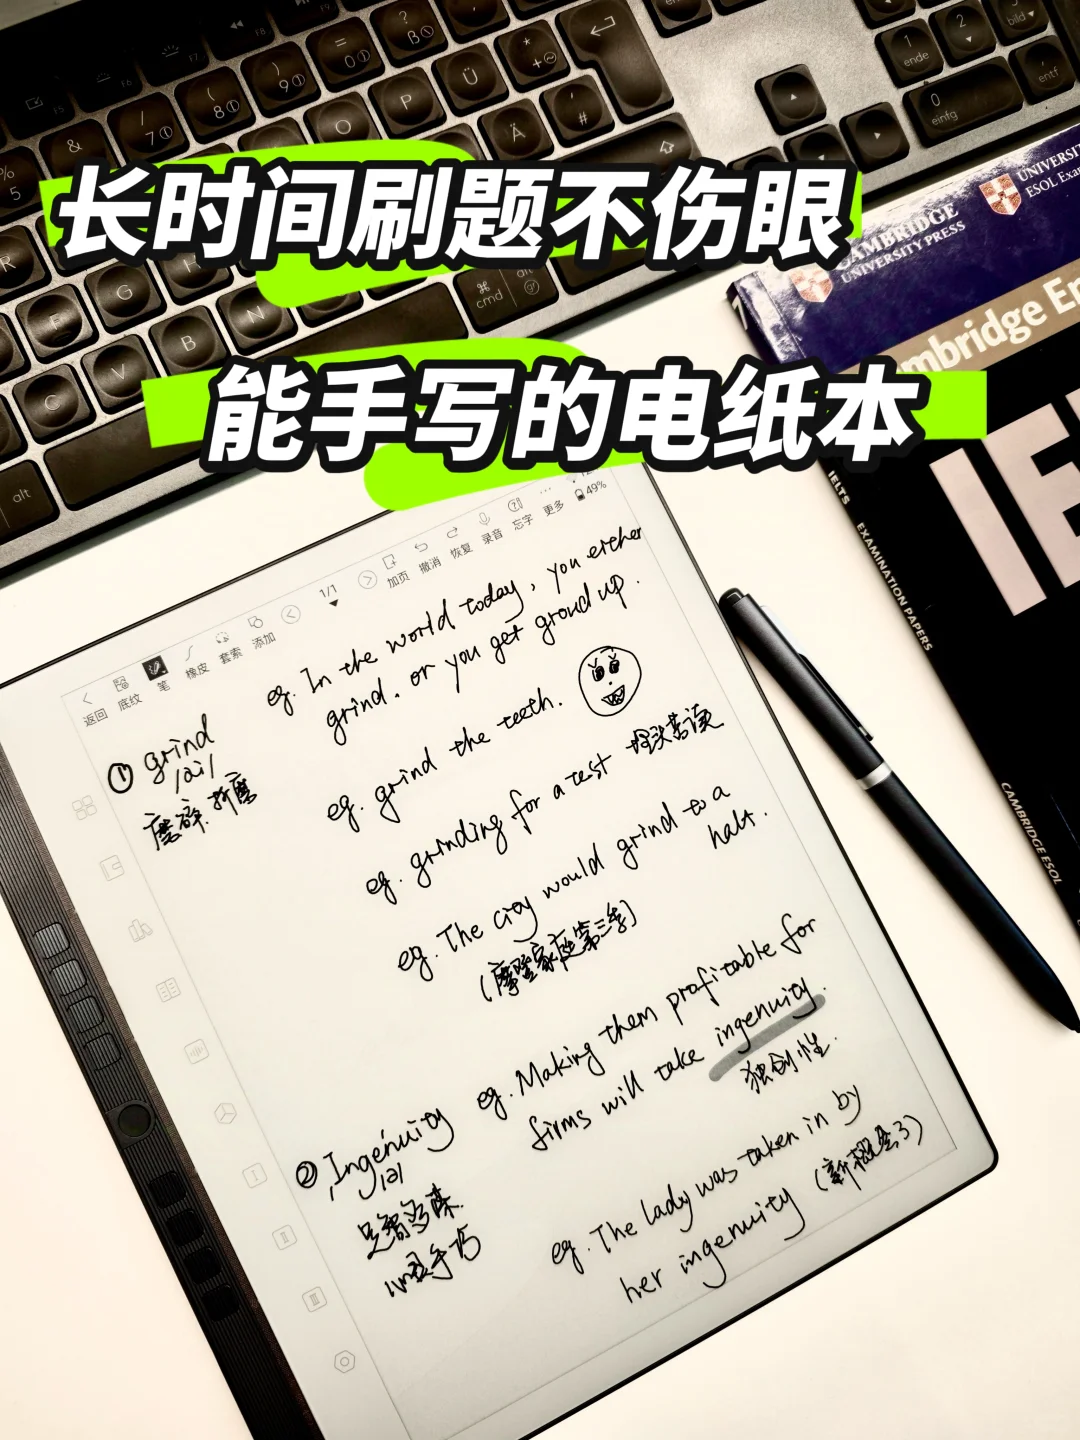 长时间刷题不伤眼
能手写的电纸本
CAMBRIDGE
UNIVERSITY PRESS
UNIVERSITY
ESOL Exam
mbridge En
IE
IELTS EXAMINATION PAPERS
CAMBRIDGE ESOL
返回 底纹 笔 橡皮 套索 添加 1/1 加页 撤消 恢复 录音 忘字 更多 49%
① grind
/ai/
磨碎、折磨
eg. In the world today, you either
grind, or you get ground up.
eg. grind the teeth.
eg. grinding for a test 埋头苦读
eg. The city would grind to a
halt.
(摩登家庭第三季)
② Ingenuity
足智多谋
心灵手巧
eg. Making them profitable for
firms will take ingenuity.
独创性.
eg. The lady was taken in by
her ingenuity (新概念3)